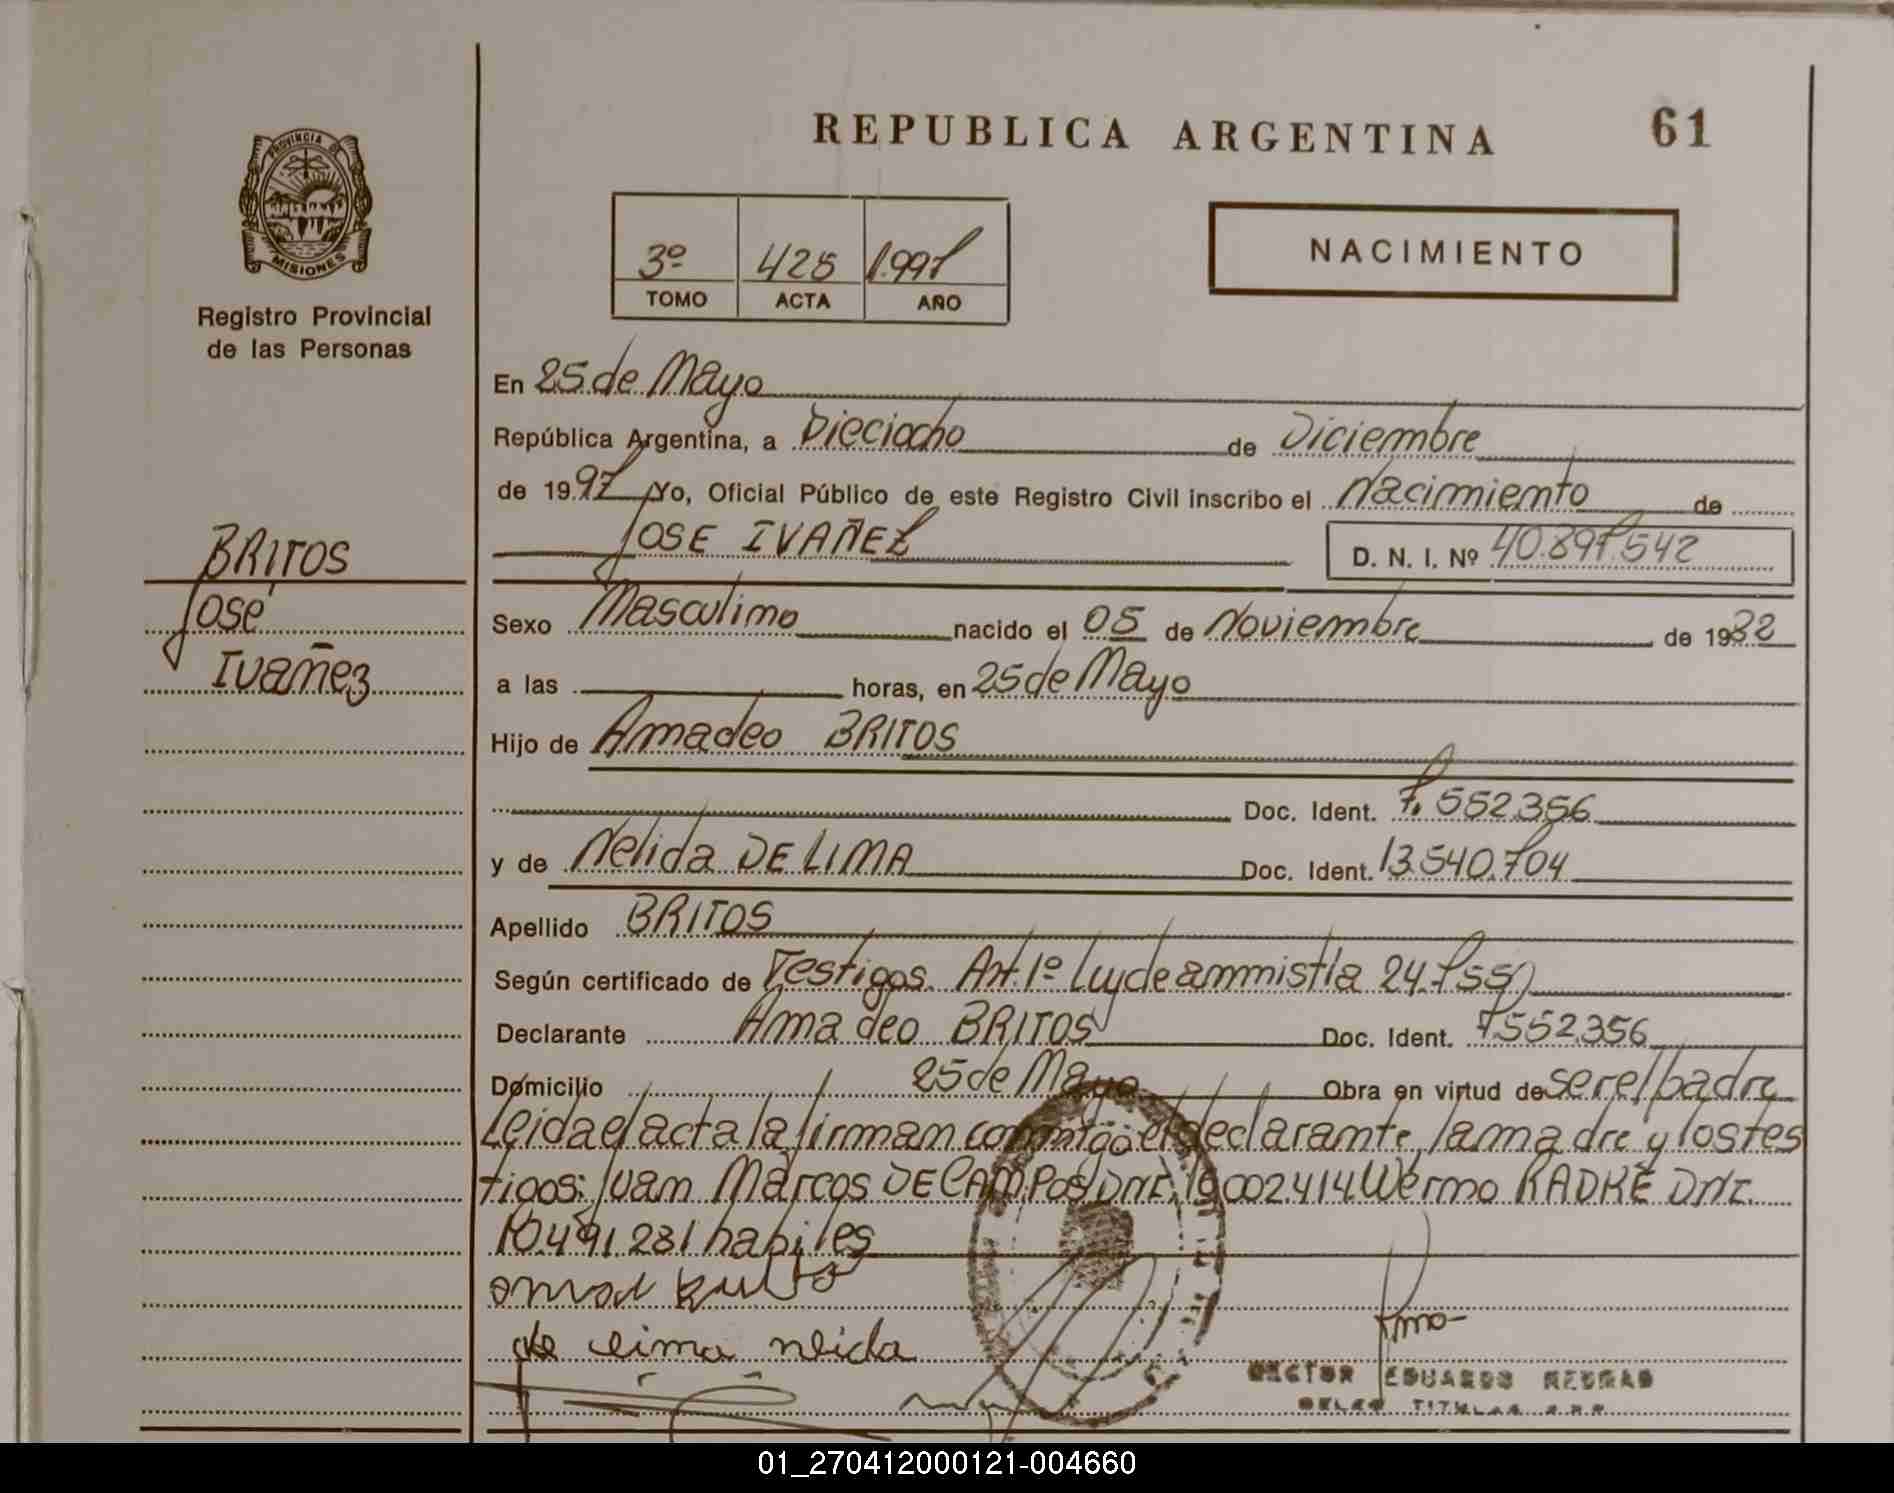 REPUBLICA ARGENTINA
61
PROVINCIA DE
MISIONES
Registro Provincial
de las Personas
3º 425 1.997
TOMO ACTA AÑO
NACIMIENTO
En 25 de Mayo
República Argentina, a Dieciocho de Diciembre
de 1997 Yo, Oficial Público de este Registro Civil inscribo el Nacimiento de
JOSE IVAÑEZ
D. N. I. Nº 40.897.542
BRITOS
José
Ivañez
Sexo Masculino nacido el 05 de Noviembre de 19
a las horas, en 25 de Mayo
Hijo de Amadeo BRITOS
Doc. Ident. 7.552.356
y de Nelida DE LIMA Doc. Ident. 13.540.704
Apellido BRITOS
Según certificado de Testigos. Art. 1º Ley de ammistia 24.755
Declarante Amadeo BRITOS Doc. Ident. 7.552.356
Domicilio 25 de Mayo Obra en virtud de ser el padre
Leida el acta la firman conmigo el declarante, la madre y los tes
tigos: Juan Marcos DE CAMPOS DNI. 19002.414 Werno RADKE DNI.
10.491.281 habiles
de lima nelida
HECTOR EDUARDO
TITULAR
01_270412000121-004660